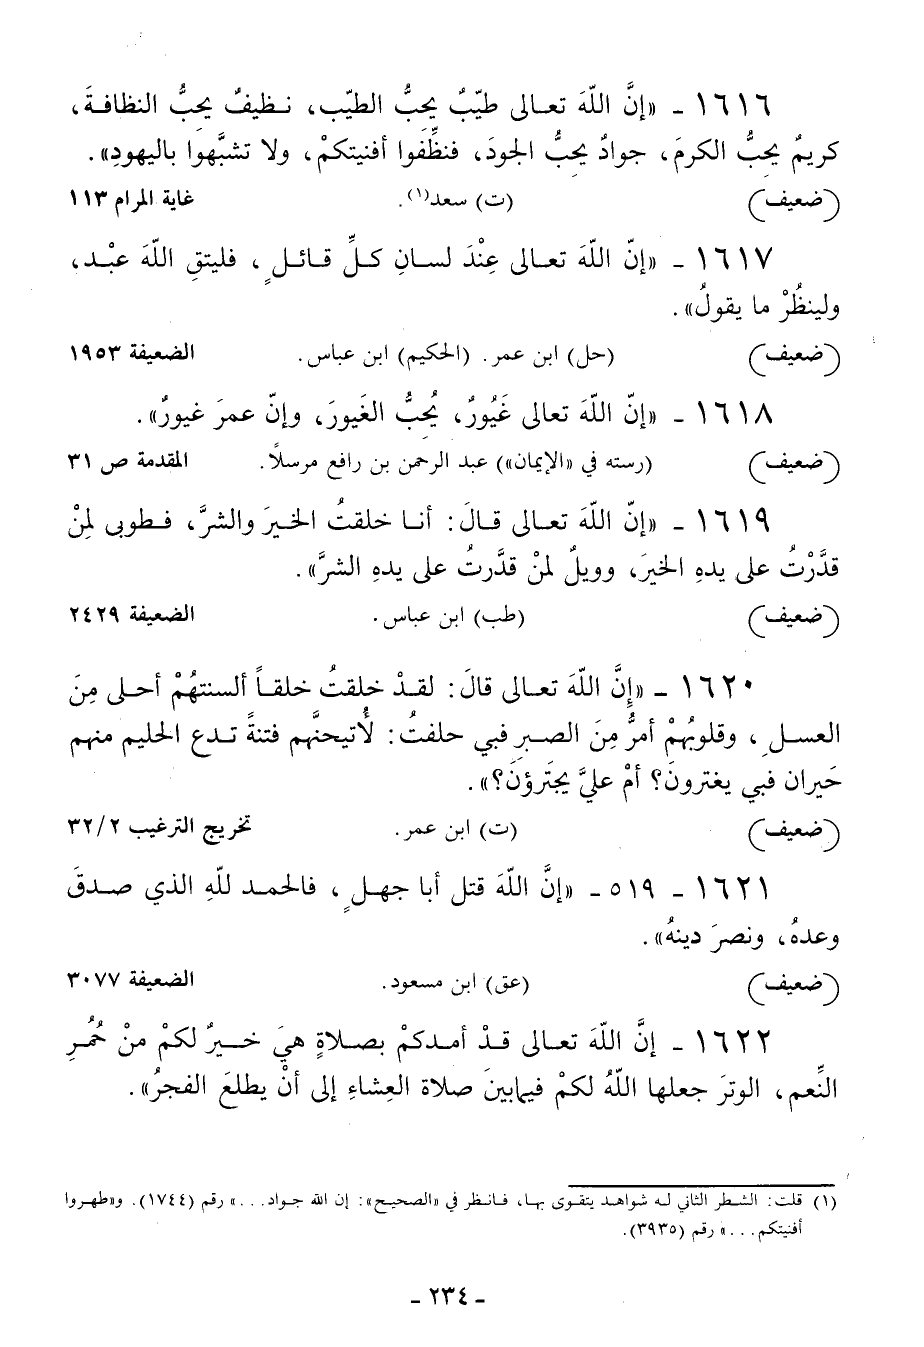 ١٦١٦ ـ «إنَّ اللّهَ تعالى طيّبٌ يحِبُّ الطيّب، نظيفٌ يحِبُّ النظافةَ،
كريمٌ يحِبُّ الكرمَ، جوادٌ يحِبُّ الجودَ، فنظِّفوا أفنيتكمْ، ولا تشبَّهوا باليهودِ».
(ضعيف) (ت) سعد(١). غاية المرام ١١٣
١٦١٧ ـ «إنّ اللّهَ تعالى عِنْدَ لسانِ كلِّ قائلٍ، فليتقِ اللّهَ عبْد،
ولينظُرْ ما يقولُ».
(ضعيف) (حل) ابن عمر. (الحكيم) ابن عباس. الضعيفة ١٩٥٣
١٦١٨ ـ «إنّ اللّهَ تعالى غَيُورٌ، يُحِبُّ الغَيورَ، وإنّ عمرَ غيورٌ».
(ضعيف) (رسته في «الإيمان») عبد الرحمن بن رافع مرسلاً. المقدمة ص ٣١
١٦١٩ ـ «إنّ اللّهَ تعالى قالَ: أنا خلقتُ الخيرَ والشرَّ، فطوبى لمنْ
قدَّرْتُ على يدهِ الخيرَ، وويلٌ لمنْ قدَّرتُ على يدهِ الشرَّ».
(ضعيف) (طب) ابن عباس. الضعيفة ٢٤٢٩
١٦٢٠ ـ «إِنَّ اللّهَ تعالى قالَ: لقدْ خلقتُ خلقاً ألسنتهُمْ أحلى مِنَ
العسلِ، وقلوبُهُمْ أمرُّ مِنَ الصبرِ فبي حلفتُ: لأُتيحنَّهم فتنةً تدع الحليم منهم
حَيران فبي يغترونَ؟ أمْ عليَّ يجتَرؤنَ؟».
(ضعيف) (ت) ابن عمر. تخريج الترغيب ٣٢/٢
١٦٢١ ـ ٥١٩ ـ «إنَّ اللّهَ قتل أبا جهلٍ، فالحمد للّهِ الذي صدقَ
وعدهُ، ونصرَ دينهُ».
(ضعيف) (عق) ابن مسعود. الضعيفة ٣٠٧٧
١٦٢٢ ـ إنَّ اللّهَ تعالى قدْ أمدكمْ بصلاةٍ هيَ خيرٌ لكمْ منْ حُمُرِ
النَّعم، الوترَ جعلها اللّهُ لكمْ فيمابينَ صلاة العِشاءِ إلى أنْ يطلعَ الفجرُ».
(١) قلت: الشطر الثاني له شواهد يتقوى بها، فانظر في «الصحيح»: إن الله جواد...» رقم (١٧٤٤). و«طهروا
أفنيتكم...» رقم (٣٩٣٥).
ـ ٢٣٤ ـ